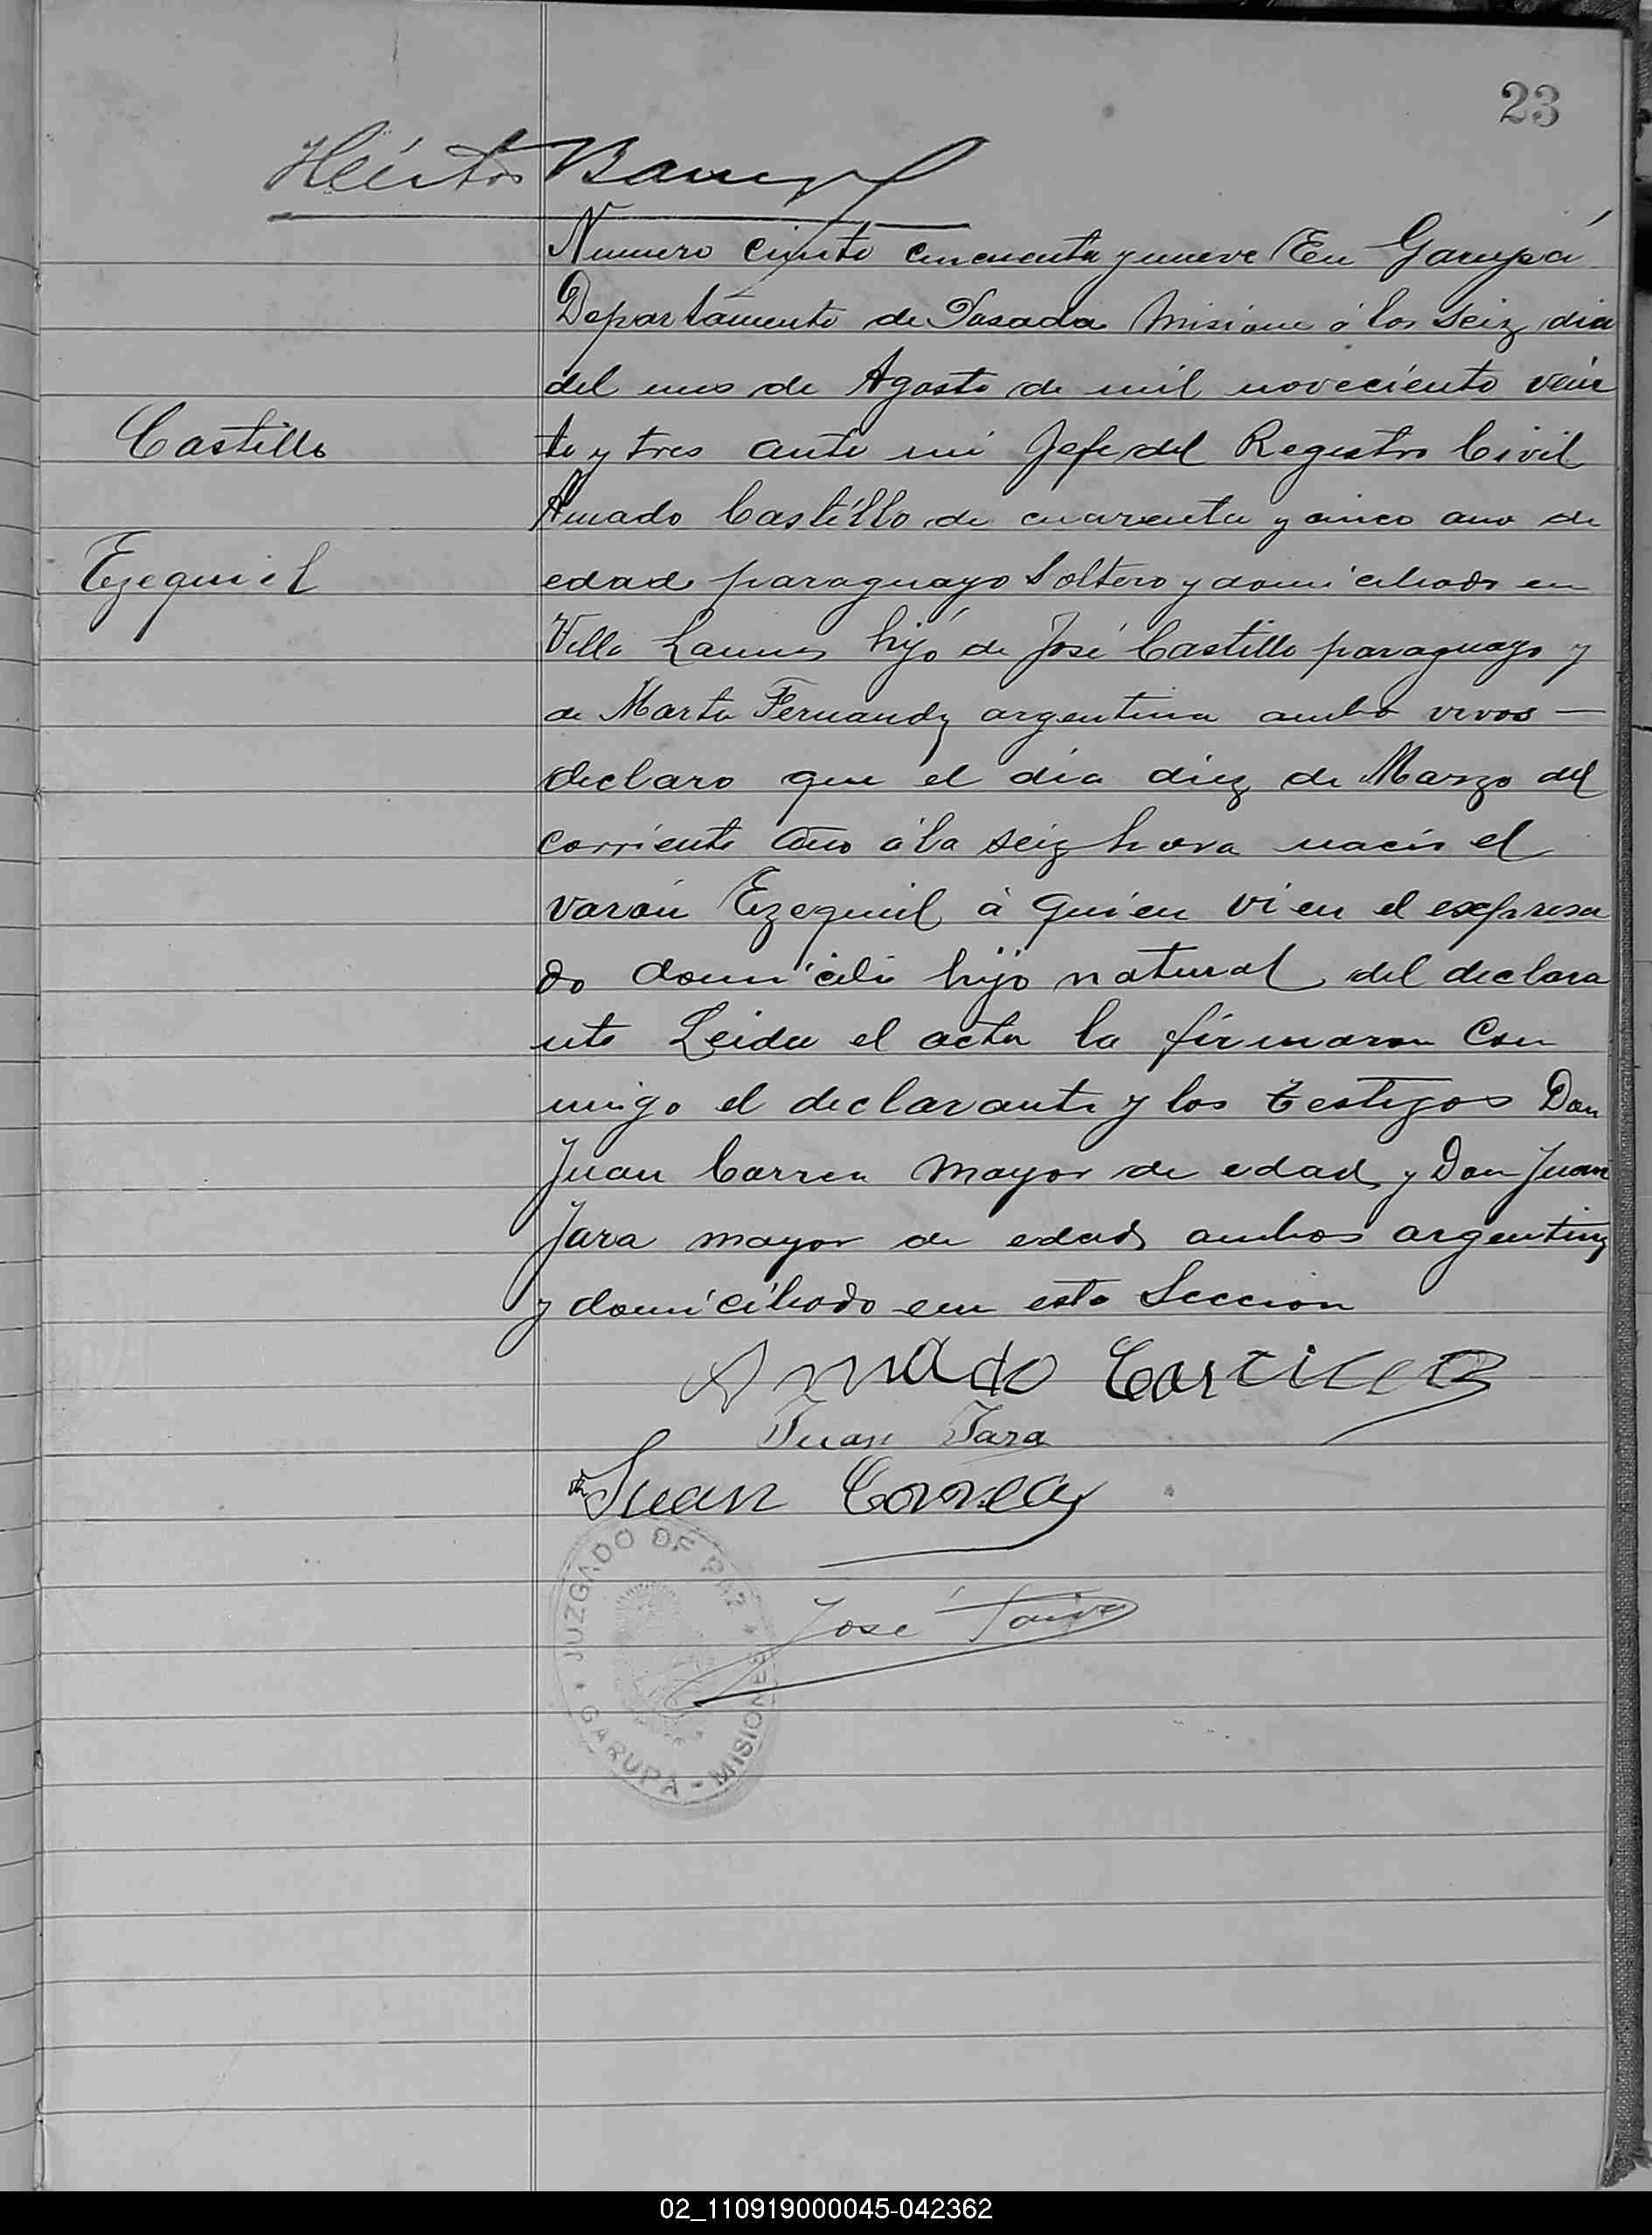 23
Héctor
Numero ciento cincuenta y nueve En Garupá
Departamento de Posadas Misione á los seiz dia
del mes de Agosto de mil noveciento vein
Castillo
te y tres ante mi Jefe del Registro Civil
Amado Castillo de cuarenta y cinco ano de
Ezequiel
edad paraguayo Soltero y domiciliado en
Villa Lanus hijo de José Castillo paraguayo y
de Marta Fernandz argentina ambo vivos —
declaro que el dia diez de Marzo del
corriente año á la seiz hora nacio el
varón Ezequiel á quien vi en el expresa
do domicilio hijo natural del declara
nte Leida el acta la firmaron Con
migo el declarante y los testigos Don
Juan Correa mayor de edad y Don Juan
Jara mayor de edad ambos argentinos
y domiciliado en esta Seccion
Amado Castillo
Juan Jara
Juan Correa
José
JUZGADO DE PAZ
GARUPA - MISIONES
02_110919000045-042362